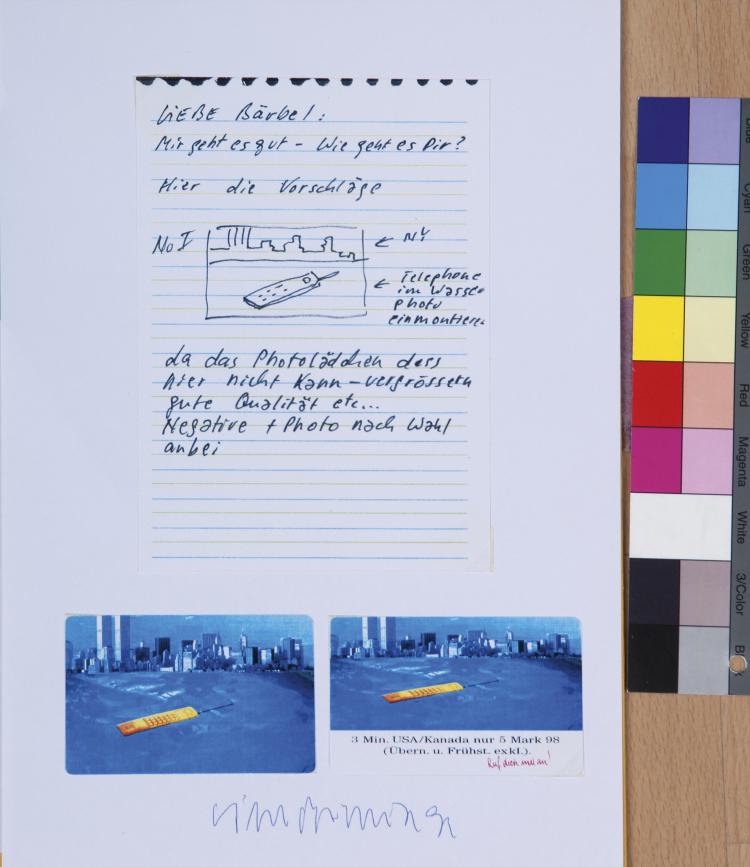 LiEBE Bärbel:
Mir geht es gut - Wie geht es Dir?
Hier die Vorschläge
No I
← NY
← Telephone
im Wasser
photo
einmontieren
da das Photolädchen dess
hier nicht kann - vergrössern
gute Qualität etc...
Negative + Photo nach Wahl
anbei
3 Min. USA/Kanada nur 5 Mark 98
(Übern. u. Frühst. exkl.).
Ruf doch mal an!
Cyan
Green
Yellow
Red
Magenta
White
3/Color